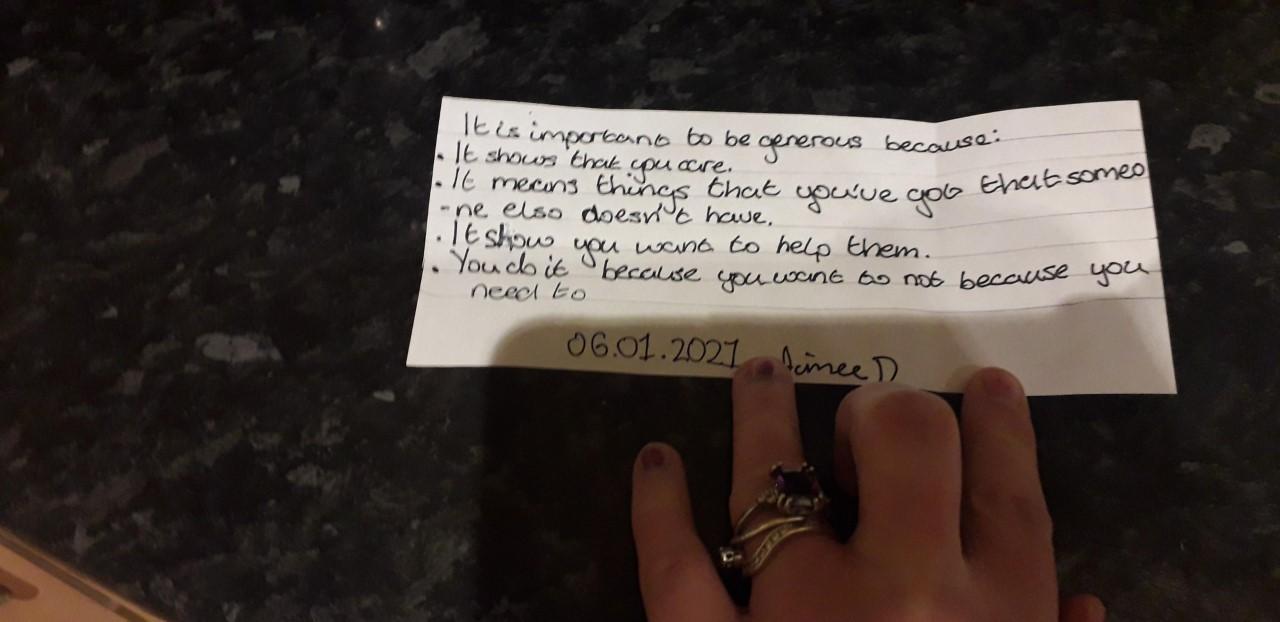 It is important to be generous because:
• It shows that you care.
• It means things that you've got that someo
-ne elso doesn't have.
• It show you want to help them.
• You do it because you want to not because you
need to
06.01.2021 Aimee D